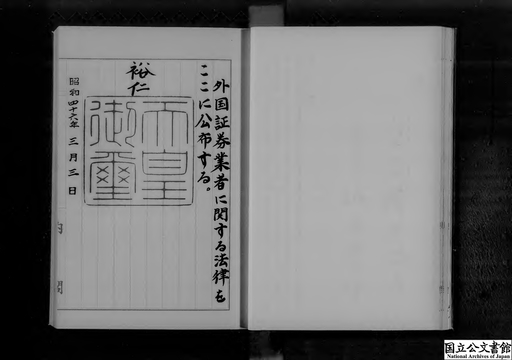 外国証券業者に関する法律を
ここに公布する。
裕仁
天皇
御璽
昭和四十六年三月三日
国立公文書館
National Archives of Japan